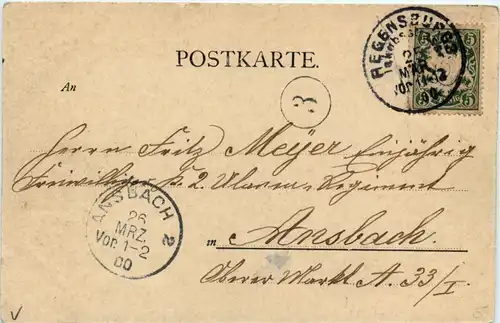 POSTKARTE.
REGENSBURG
MRZ
Vor. 11-12
00
5 5
An
3
Herrn Fritz Meyer Einjährig
Freiwilliger k. 2. Ulanen-Regiment
ANSBACH 2
26
MRZ.
Vor. 1-2
00
in Ansbach.
Oberer Markt A. 33/I.